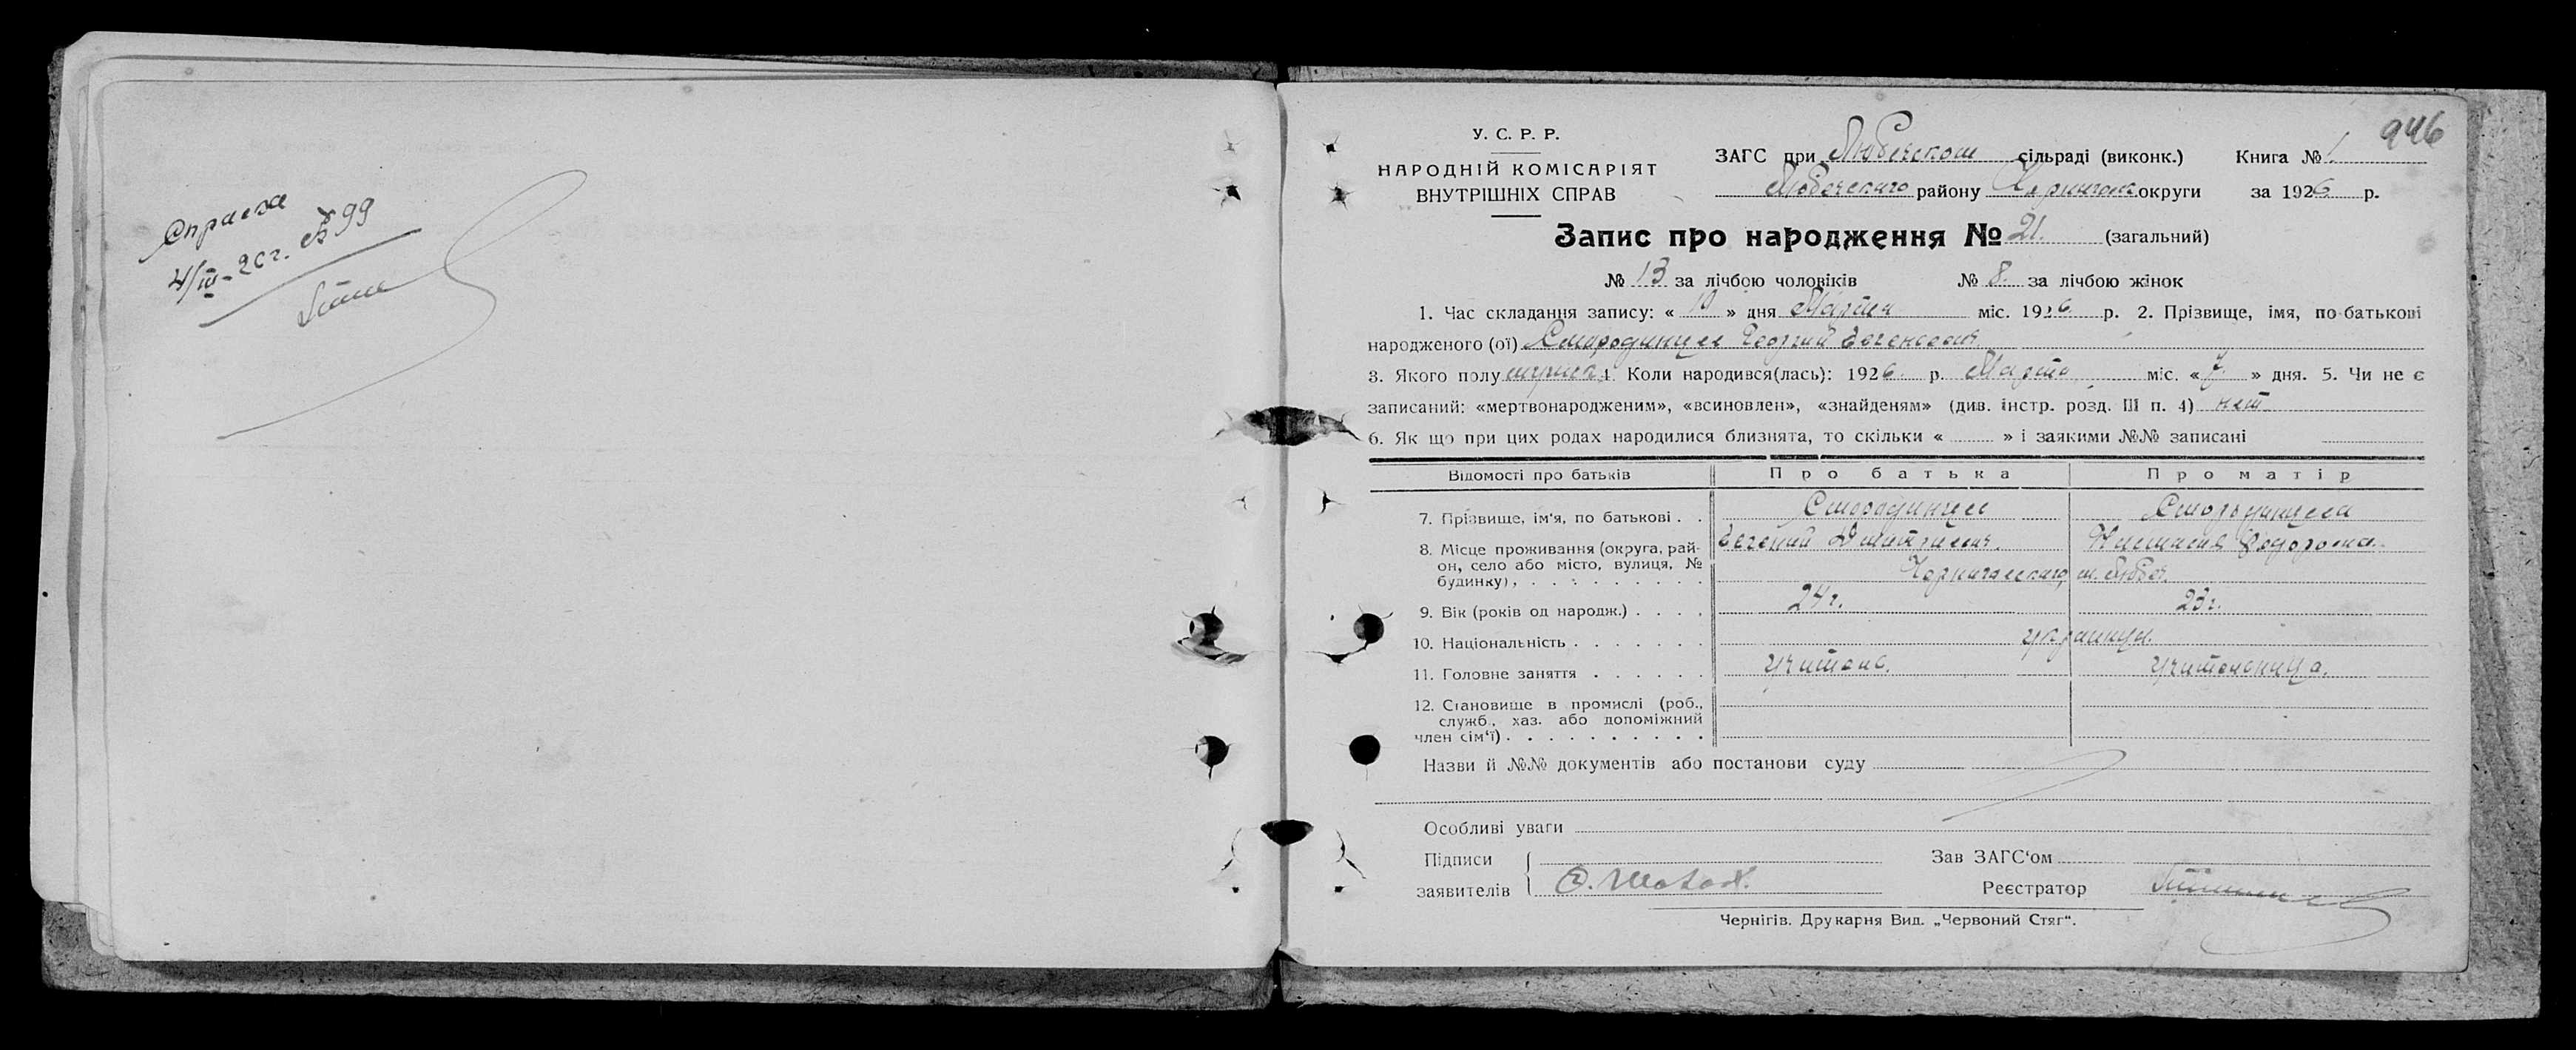 Справка
4/III-26г. № 99
946
У. С. Р. Р.
НАРОДНІЙ КОМІСАРІЯТ
ВНУТРІШНІХ СПРАВ
ЗАГС при Любечском сільраді (виконк.) Книга № 1
Любечского району Чернигов. округи за 1926 р.
Запис про народження № 21. (загальний)
№ 13 за лічбою чоловіків № 8. за лічбою жінок
1. Час складання запису: « 10 » дня Марта міс. 1926 р. 2. Прізвище, імя, по-батькові
народженого (ої) Смородинцев Георгий Евгеневич
3. Якого полу мужск. 4. Коли народився(лась): 1926 р. Марта міс. « 7 » дня. 5. Чи не є
записаний: «мертвонародженим», «всиновлен», «знайденям» (див. інстр. розд. III п. 4) нет
6. Як що при цих родах народилися близнята, то скільки « » і заякими №№ записані
Відомості про батьків Про батька Про матір
7. Прізвище, ім'я, по батькові . . Смородинцев Смородинцева
Евгений Дмитриевич. Анастасия Федоровна
8. Місце проживання (округа, рай-
он, село або місто, вулиця, №
будинку), . . . . . . . . . Черниговского, м. Любеч.
9. Вік (років од народж.) . . . . 24г. 23г.
10. Національність . . . . . . . украинцы.
11. Головне заняття . . . . . . учитель. учительница.
12. Становище в промислі (роб.,
служб., хаз. або допоміжний
член сім'ї) . . . . . . . . . .
Назви й №№ документів або постанови суду
Особливі уваги
Підписи
Зав ЗАГС'ом
заявителів
Реєстратор
Чернігів. Друкарня Вид. „Червоний Стяг".